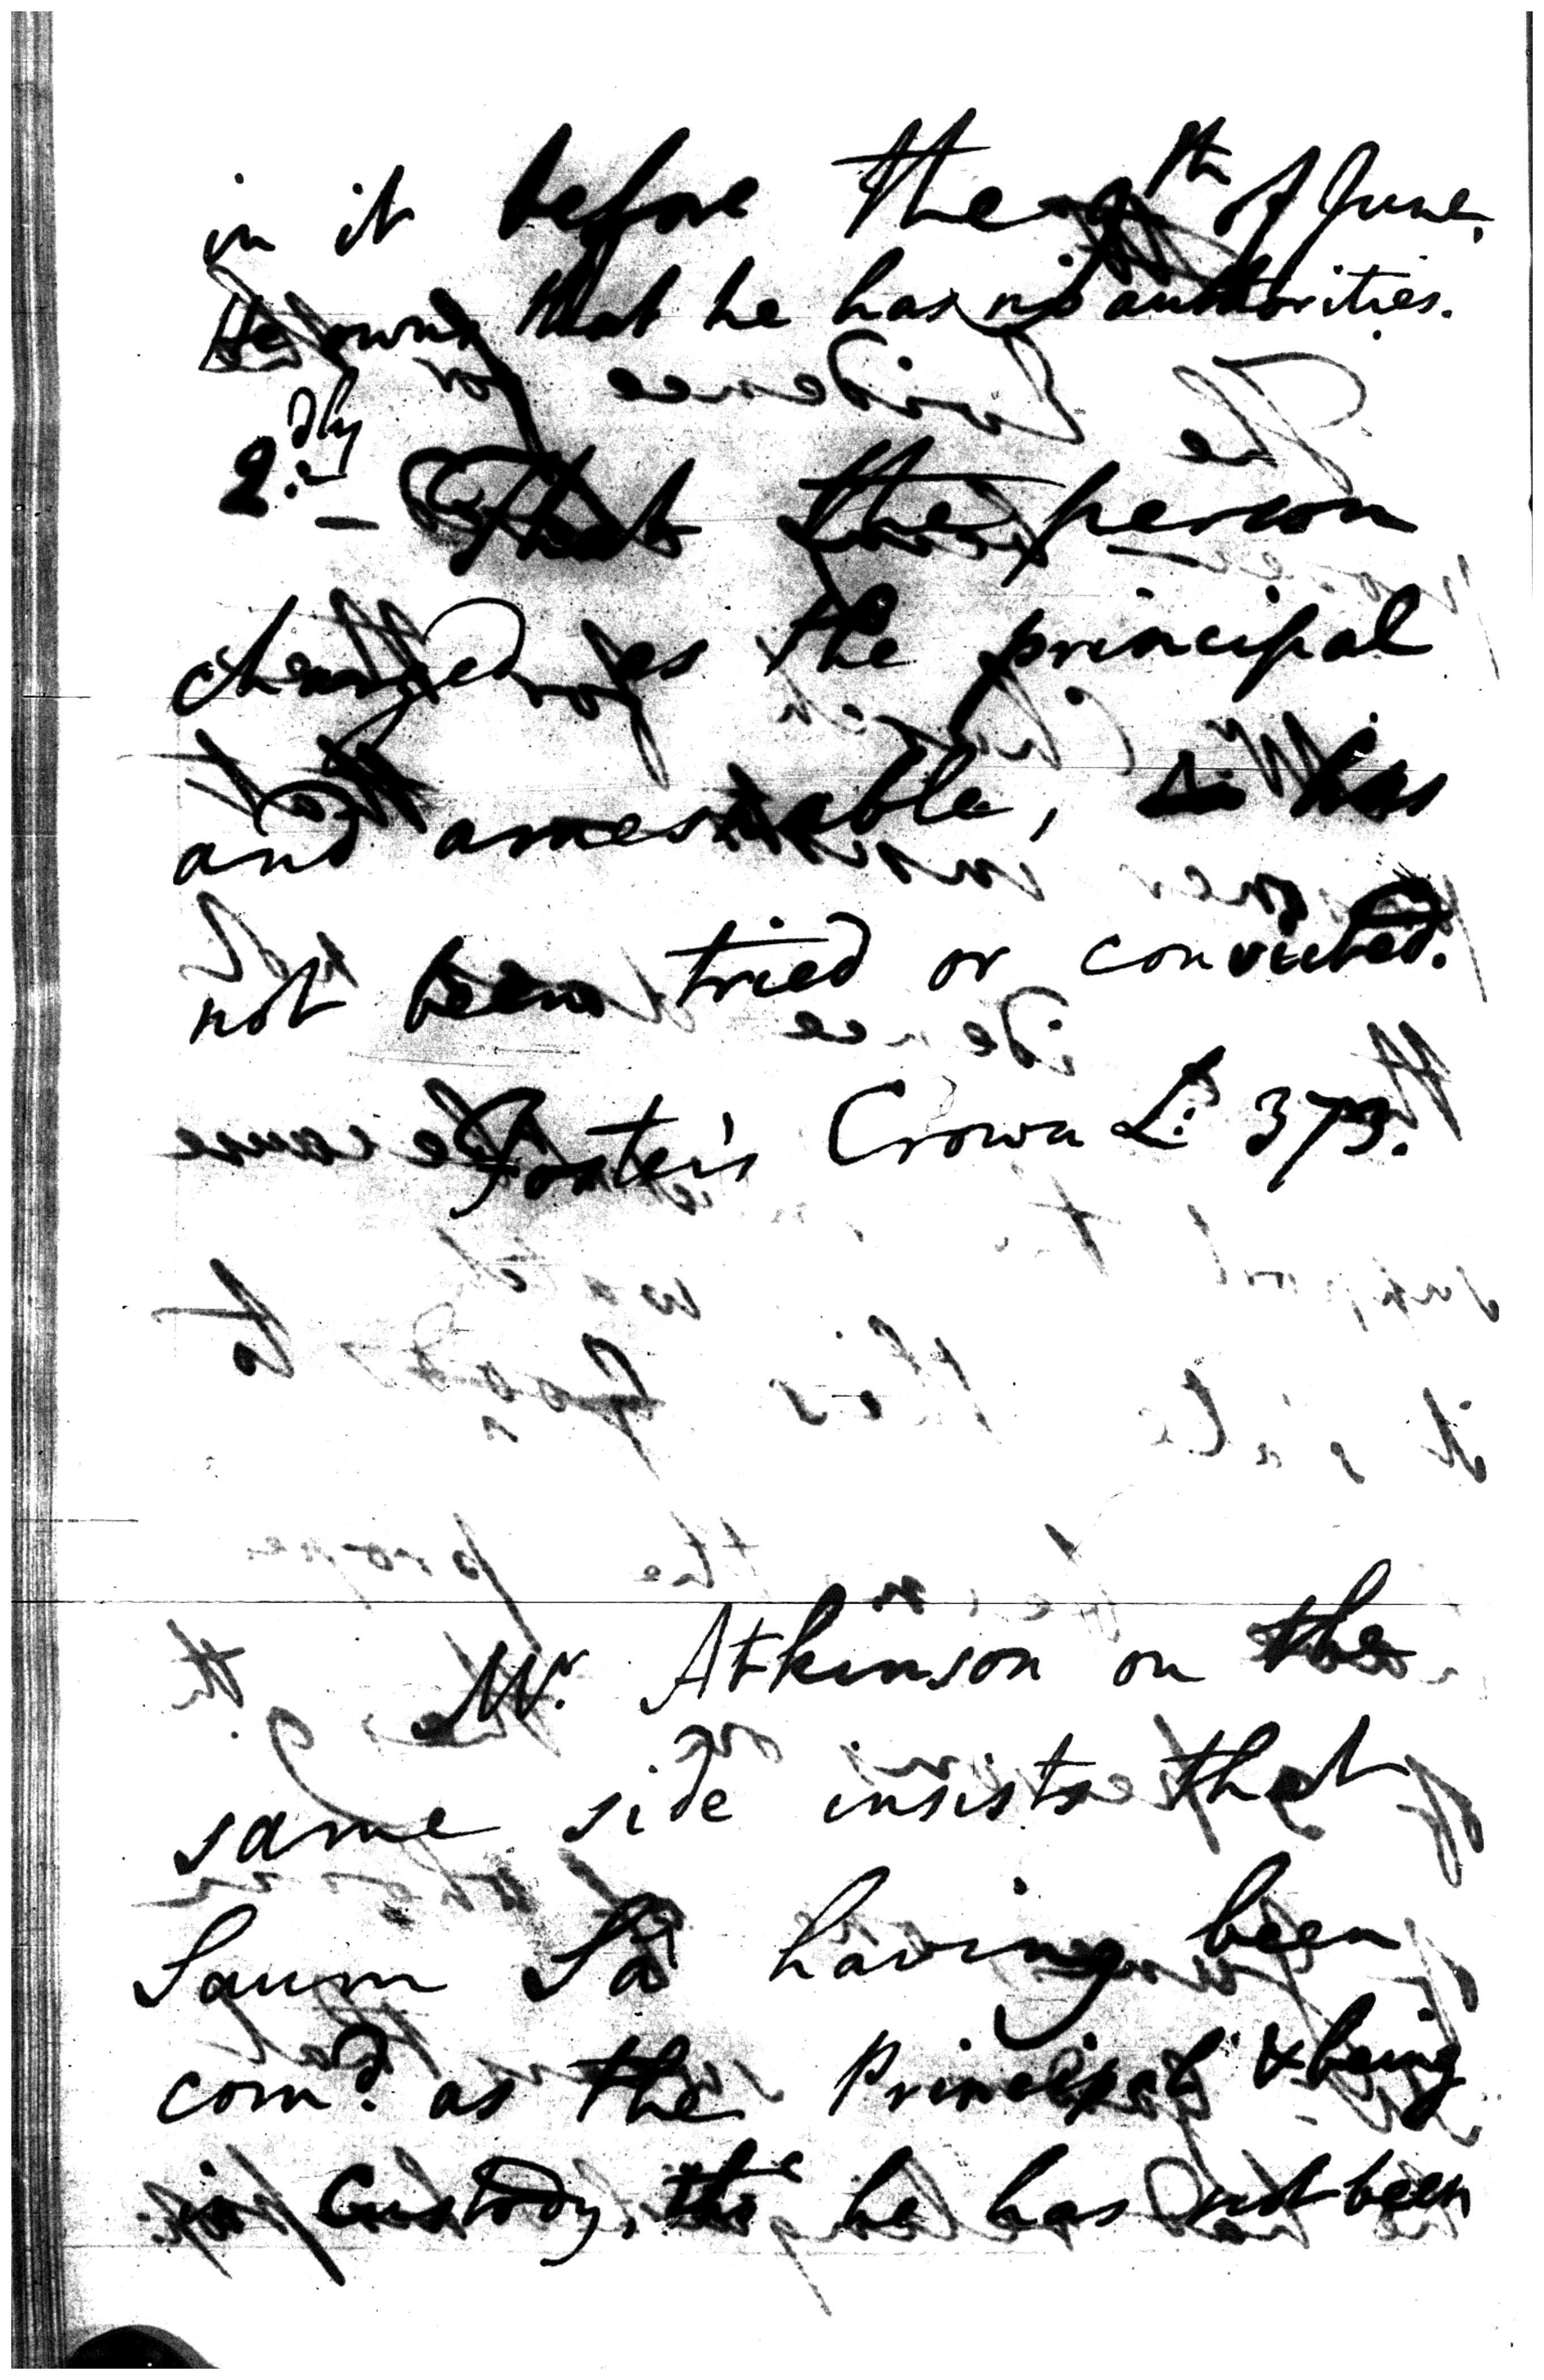 in it before the 9th of June.
He owns that he has no authorities.
2.dly – That the person
charged as the principal
and amesnable, has
not been tried or convicted.
Foster's Crown L: 373.
Mr. Atkinson on the
same side insists that
Saum Sa having been
com'd. as the Principal & being
in Custody, tho' he has not been